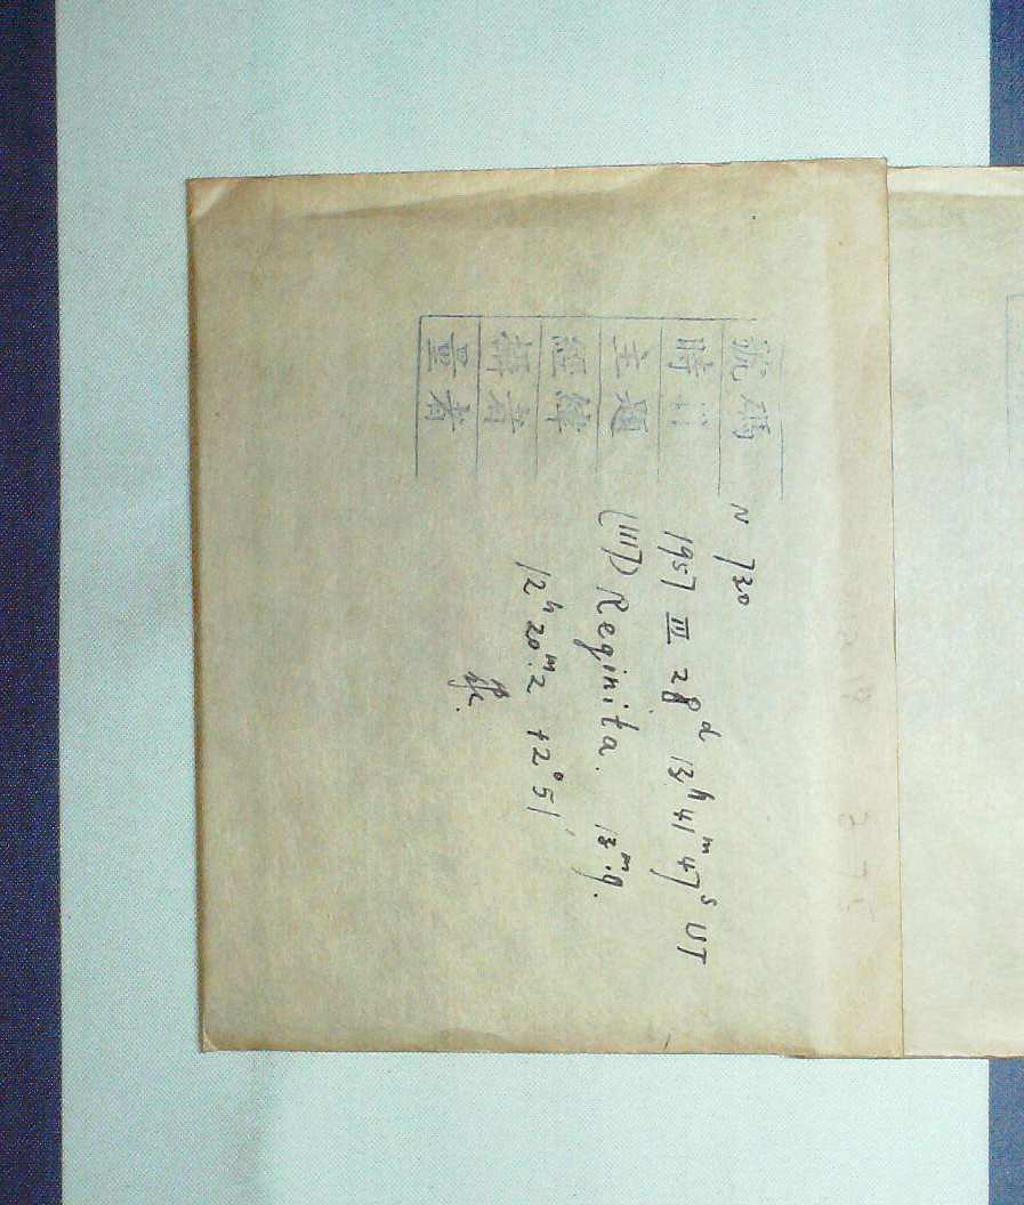 號碼 N 730
時 1957 III 28ᵈ 13ʰ41ᵐ47ˢ UT
主題 (1117) Reginita. 13ᵐ.9.
經緯 12ʰ20ᵐ.2 +2°51′
者
量者